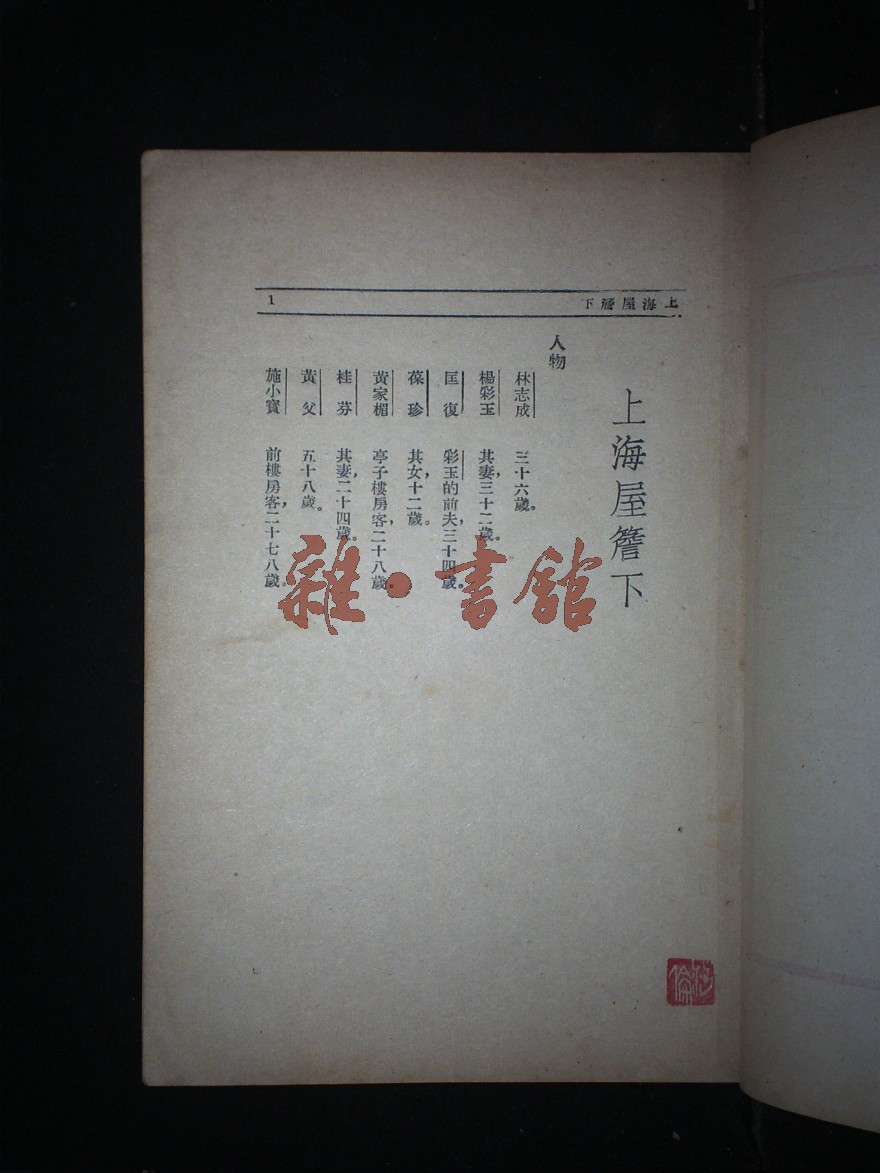 上海屋簷下
1
上海屋簷下
人物
林志成 三十六歲。
楊彩玉 其妻,三十二歲。
匡復 彩玉的前夫,三十四歲。
葆珍 其女,十二歲。
黃家楣 亭子樓房客,二十八歲。
桂芬 其妻,二十四歲。
黃父 五十八歲。
施小寶 前樓房客,二十七八歲。
雜·書館